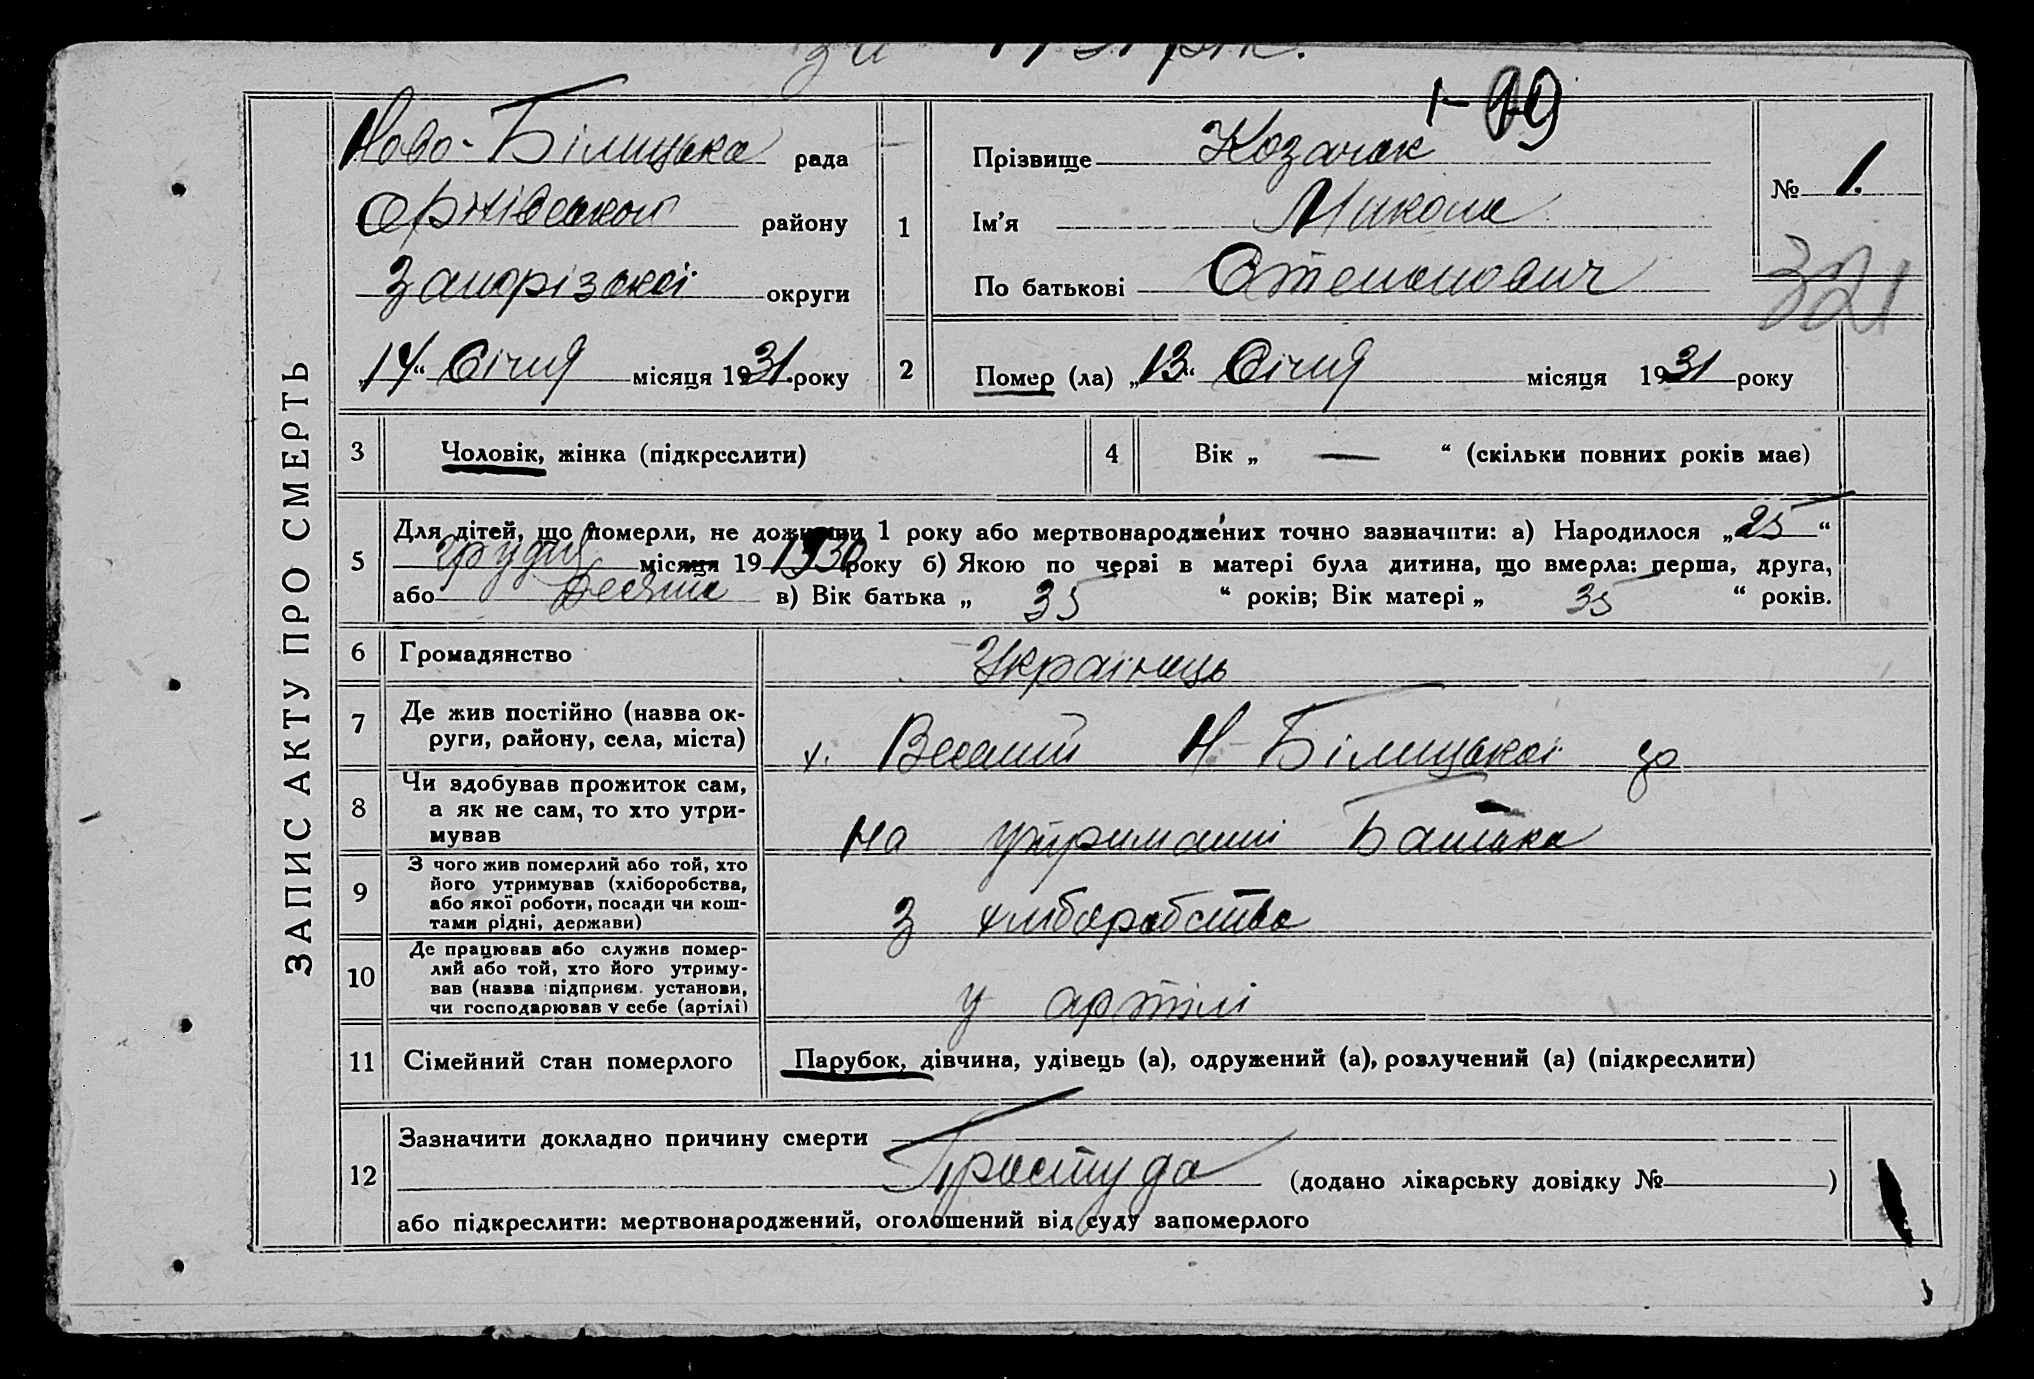 за 1931 рік.
1-99
ЗАПИС АКТУ ПРО СМЕРТЬ
Ново-Білицька рада
району
Запорізької округи
„14“ Січня місяця 1931 року
1
Прізвище Козачек
Ім'я Микола
По батькові Степанович
№ 1.
321
2
Помер (ла) „13“ Січня місяця 1931 року
3
Чоловік, жінка (підкреслити)
4
Вік „ — “ (скільки повних років має)
5
Для дітей, що померли, не доживши 1 року або мертвонароджених точно зазначити: а) Народилося „25“
грудня місяця 19 1930 року б) Якою по черзі в матері була дитина, що вмерла: перша, друга,
або Десята в) Вік батька „ 35 “ років; Вік матері „ 35 “ років.
6
Громадянство
Українець
7
Де жив постійно (назва ок-
руги, району, села, міста)
х. Веселий Н-Білицької
8
Чи здобував прожиток сам,
а як не сам, то хто утри-
мував
на утриманні Батька
9
З чого жив померлий або той, хто
його утримував (хліборобства,
або якої роботи, посади чи кош-
тами рідні, держави)
з хліборобства
10
Де працював або служив помер-
лий або той, хто його утриму-
вав (назва підприєм. установи,
чи господарював у себе (артілі)
у артілі
11
Сімейний стан померлого
Парубок, дівчина, удівець (а), одружений (а), розлучений (а) (підкреслити)
12
Зазначити докладно причину смерти
Простуда (додано лікарську довідку № )
або підкреслити: мертвонароджений, оголошений від суду запомерлого